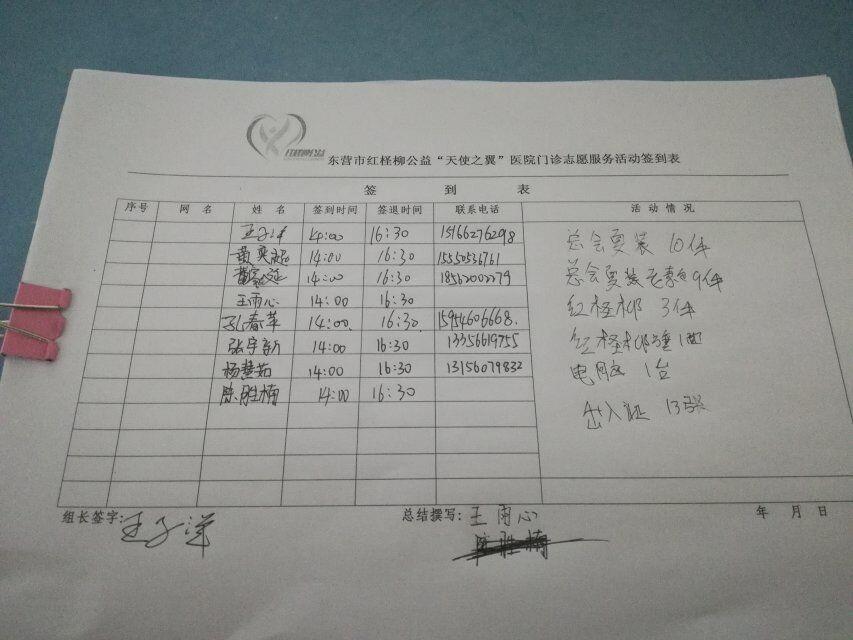 东营市红柽柳公益“天使之翼”医院门诊志愿服务活动签到表
签 到 表
序号 网 名 姓 名 签到时间 签退时间 联系电话 活 动 情 况
王子洋 14:00 16:30 15166276298
14:00 16:30 15550536761
14:00 16:30 18562002279
王雨心 14:00 16:30
孔春苹 14:00 16:30 15954606668.
张宇新 14:00 16:30 13356619755
杨慧茹 14:00 16:30 13156079832
陈胜楠 14:00 16:30
总会夏装 10件
总会夏装 9件
红柽柳 3件
红柽柳 1
电脑 1台
出入证 13张
组长签字: 王子洋
总结撰写: 王雨心
陈胜楠
年 月 日